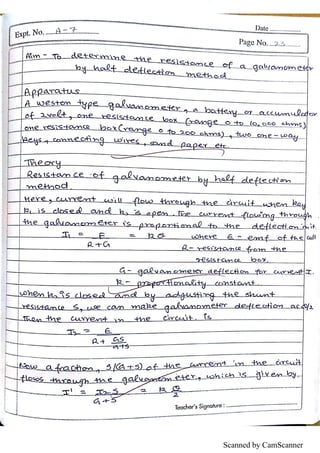 Expt. No. A-7
Date
Page No. 25
Aim - To determine the resistance of a galvanometer
by half deflection method.
Apparatus
A weston type galvanometer, a battery or accumulator
of 2 volt, one resistance box (range 0 to 10,000 ohms)
one resistance box (range 0 to 200 ohms), two one-way
keys, connecting wires, sand paper etc
Theory
Resistance of galvanometer by half deflection
method.
Here, current will flow through the circuit when key
k₁ is closed and k₂ is open. The current flowing through
the galvanometer is proportional to the deflection in it
I₁ = E/R+G = kθ where E - emf of the cell
R - resistance from the
resistance box.
G - galvanometer deflection for current I.
k - proportionality constant.
when k₂ is closed and by adjusting the shunt
resistance S, we can make galvanometer deflection as θ/2
Then the current in the circuit. is
Is = E/R+ GS/G+S
Now a fraction, S/(G+S) of the current in the circuit
flows through the galvanometer, which is given by
I' = Is S/G+S = k θ/2
Teacher's Signature :
Scanned by CamScanner